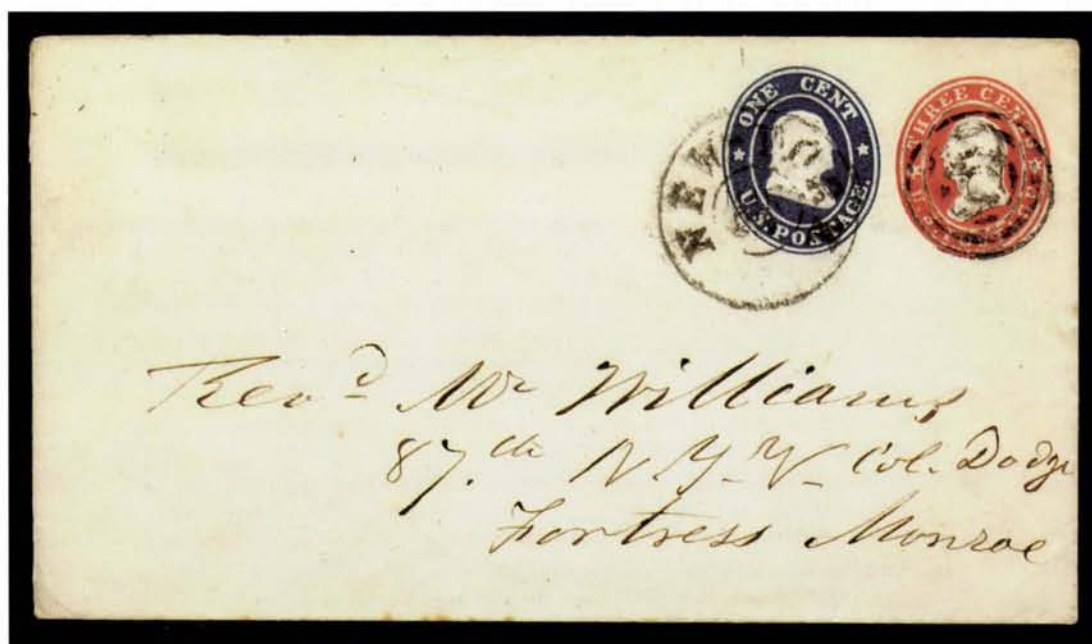 ONE CENT
U.S. POSTAGE.
THREE CENTS
NEW
Rev^d Mr Williams
87.th N.Y.V. Col. Dodge
Fortress Monroe